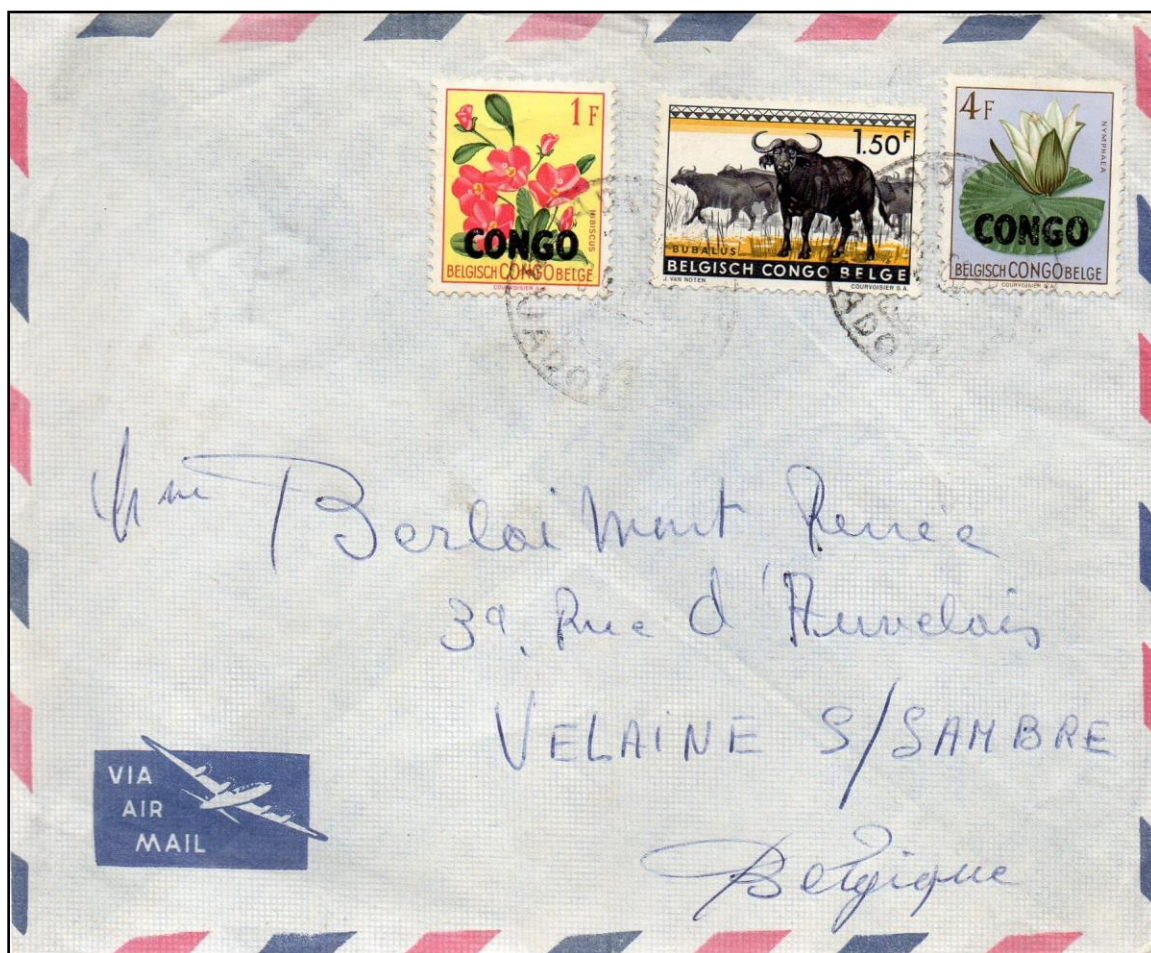 1F
HIBISCUS
CONGO
BELGISCH CONGO BELGE
COURVOISIER S.A.
1.50F
BUBALUS
BELGISCH CONGO BELGE
J. VAN NOTEN
COURVOISIER S.A.
4F
NYMPHAEA
CONGO
BELGISCH CONGO BELGE
COURVOISIER S.A.
Mme Berlaimont Renée
39, Rue d'Auvelais
VELAINE S/SAMBRE
Belgique
VIA
AIR
MAIL